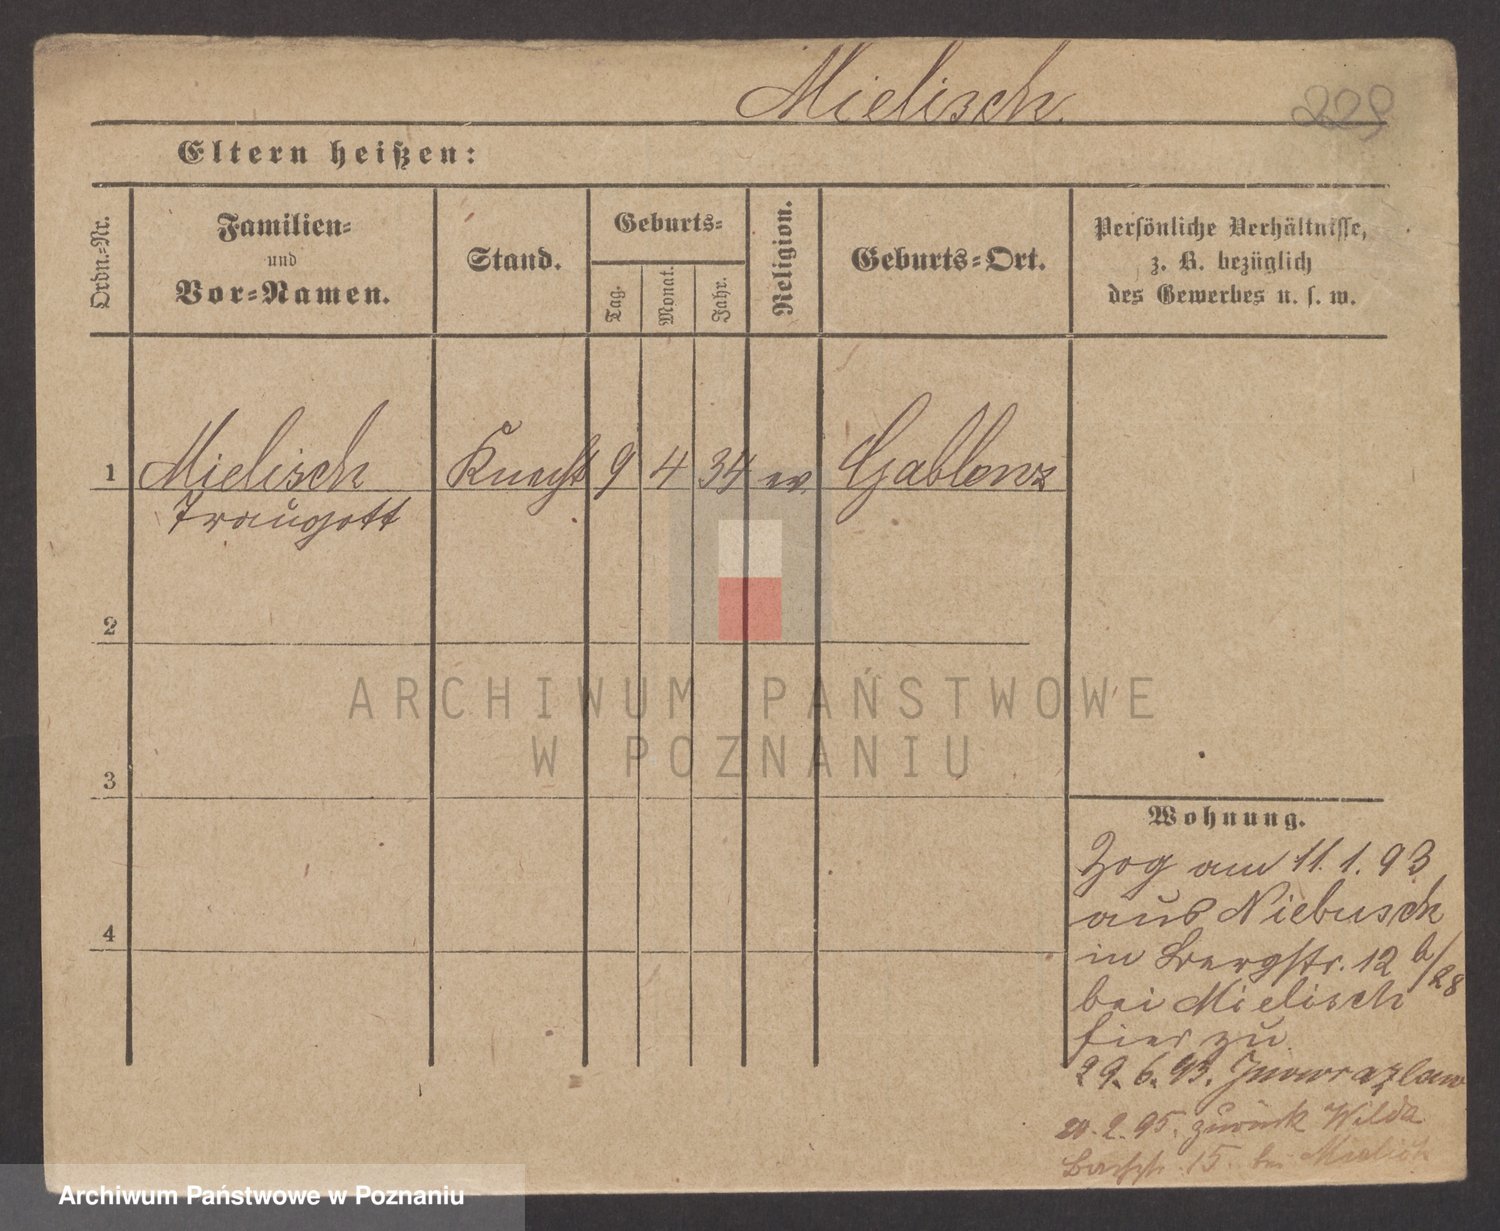 Mielisch.
229
Eltern heißen:
Ordn.-Nr.
Familien-
und
Vor-Namen.
Stand.
Geburts-
Tag.
Monat.
Jahr.
Religion.
Geburts-Ort.
Persönliche Verhältnisse,
z. B. bezüglich
des Gewerbes u. s. w.
1 Mielisch Knecht 9 4 34 ev. Gablenz
Traugott
2
3
4
ARCHIWUM PAŃSTWOWE
W POZNANIU
Wohnung.
Zog am 11.1.93
aus Niebusch
in Bergstr. 12 b/28
bei Mielisch
hier zu
29.6.93. Inowrazlaw
20.2.95. zurück Wilda
15. bei Mielisch
Archiwum Państwowe w Poznaniu